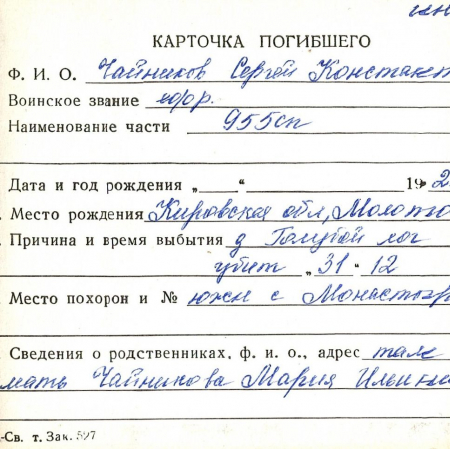 КАРТОЧКА ПОГИБШЕГО
Ф. И. О. Чайников Сергей Констант
Воинское звание ефр.
Наименование части 955сп
Дата и год рождения „ “ 192
Место рождения Кировская обл, Молото
Причина и время выбытия д Голубой лог
убит „31 “ 12
Место похорон и № южн с Монастыр
Сведения о родственниках, ф. и о., адрес там
мать Чайникова Мария
-Св. т. Зак. 527